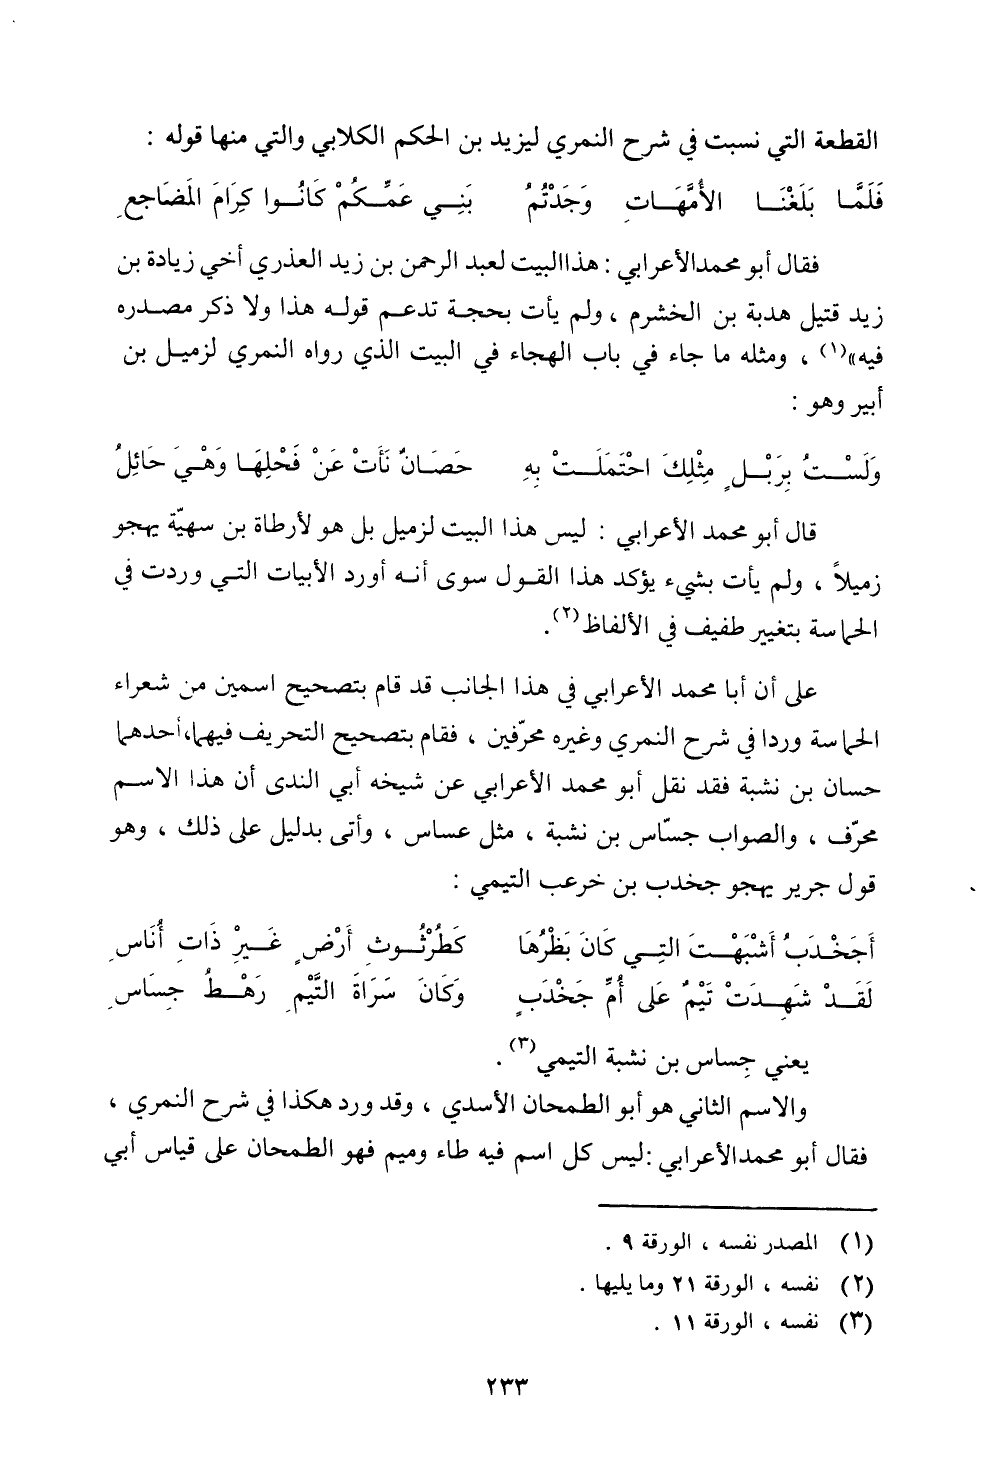 القطعة التي نسبت في شرح النمري ليزيد بن الحكم الكلابي والتي منها قوله :
فَلَمَّا بَلَغْنَا الأُمَّهَاتِ وَجَدْتُمُ بَنِي عَمِّكُمْ كَانُوا كِرَامَ المَضَاجعِ
فقال أبو محمد الأعرابي : هذا البيت لعبد الرحمن بن زيد العذري أخي زيادة بن
زيد قتيل هدبة بن الخشرم ، ولم يأت بحجة تدعم قوله هذا ولا ذكر مصدره
فيه»(١) ، ومثله ما جاء في باب الهجاء في البيت الذي رواه النمري لزميل بن
أبير وهو :
وَلَسْتُ بِرَبْلٍ مِثْلِكَ احْتَمَلَتْ بِهِ حَصَانٌ نَأَتْ عَنْ فَحْلِهَا وَهْيَ حَائِلُ
قال أبو محمد الأعرابي : ليس هذا البيت لزميل بل هو لأرطاة بن سهيّة يهجو
زميلاً ، ولم يأت بشيء يؤكد هذا القول سوى أنه أورد الأبيات التي وردت في
الحماسة بتغيير طفيف في الألفاظ(٢).
على أن أبا محمد الأعرابي في هذا الجانب قد قام بتصحيح اسمين من شعراء
الحماسة وردا في شرح النمري وغيره محرّفين ، فقام بتصحيح التحريف فيهما،أحدهما
حسان بن نشبة فقد نقل أبو محمد الأعرابي عن شيخه أبي الندى أن هذا الاسم
محرّف ، والصواب جسّاس بن نشبة ، مثل عساس ، وأتى بدليل على ذلك ، وهو
قول جرير يهجو جخدب بن خرعب التيمي :
أَجَخْدَبُ أَشْبَهْتَ التِي كَانَ بَظْرُهَا كَطُرْثُوثِ أَرْضٍ غَيرِْ ذَاتِ أُنَاسِ
لَقَدْ شَهِدَتْ تَيْمٌ عَلى أُمِّ جَخْدَبٍ وَكَانَ سَرَاةَ التَّيْمِ رَهْطُ جِسَاسِ
يعني جِساس بن نشبة التيمي(٣) .
والاسم الثاني هو أبو الطمحان الأسدي ، وقد ورد هكذا في شرح النمري ،
فقال أبو محمد الأعرابي :ليس كل اسم فيه طاء وميم فهو الطمحان على قياس أبي
(١) المصدر نفسه ، الورقة ٩ .
(٢) نفسه ، الورقة ٢١ وما يليها .
(٣) نفسه ، الورقة ١١ .
٢٣٣